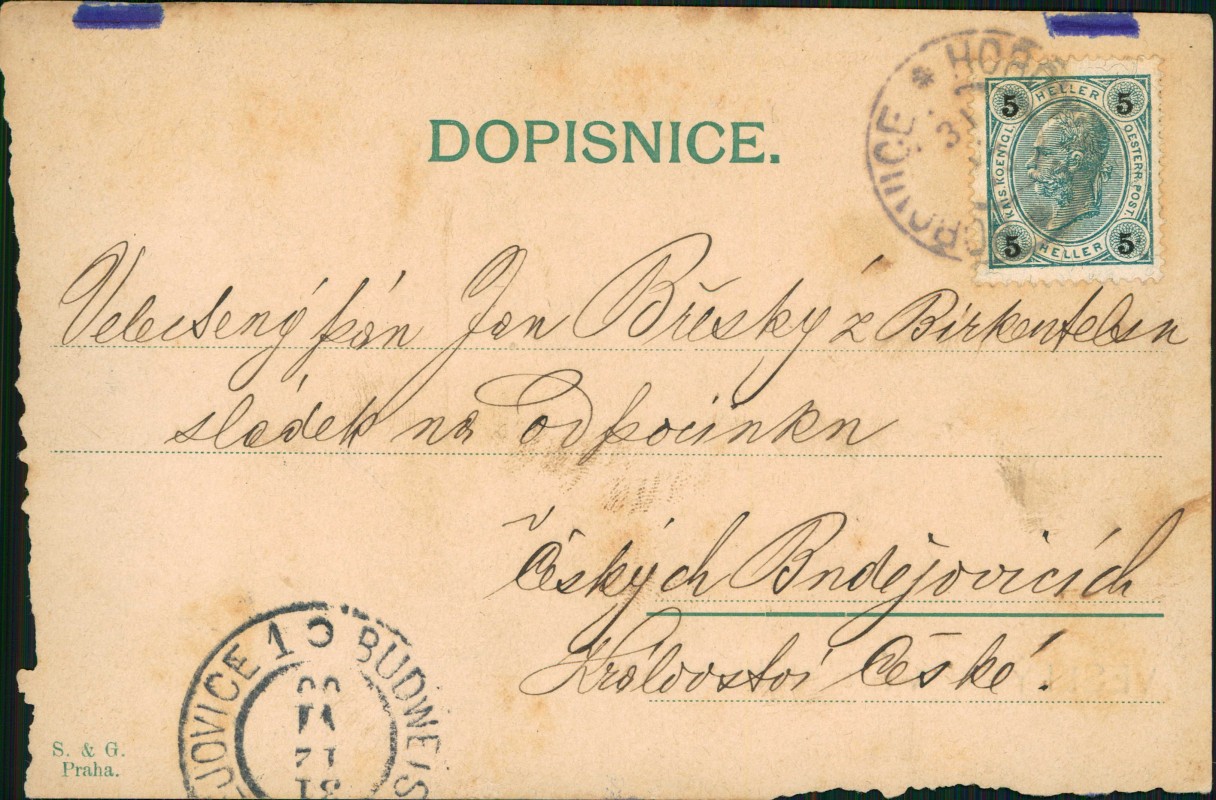 DOPISNICE.
5 HELLER 5
KAIS. KOENIGL. OESTERR. POST.
5 HELLER 5
Velectený pán Jan Břeský z Birkenfelsn
sládek na odpočinku
Českých Budějovicích
Království České.
1 BUDWEIS
S. & G.
Praha.